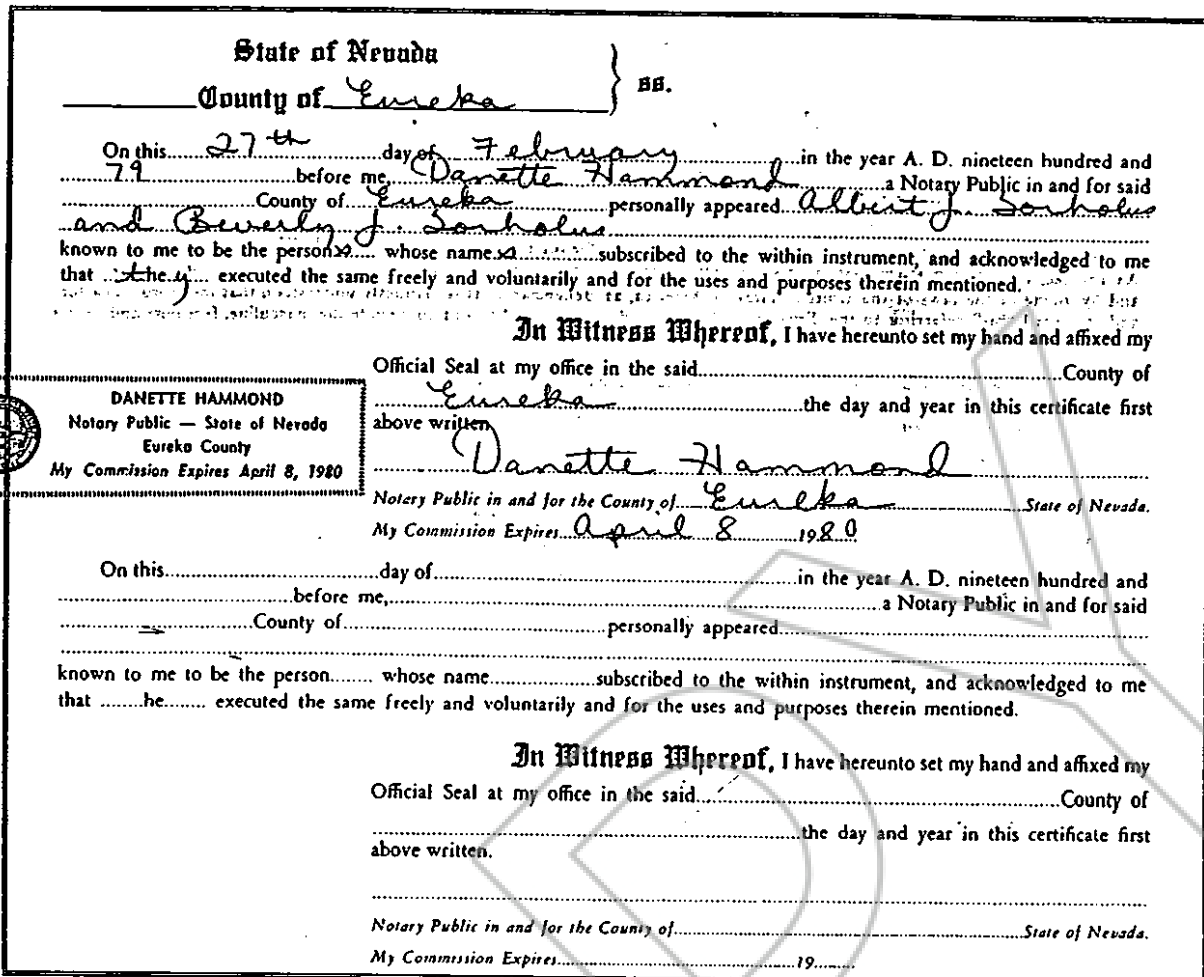 State of Nevada
County of Eureka } ss.
On this 27th day of February in the year A. D. nineteen hundred and
79 before me, Danette Hammond a Notary Public in and for said
County of Eureka personally appeared Albert J. Sorholus
and Beverly J. Sorholus
known to me to be the persons whose names subscribed to the within instrument, and acknowledged to me
that they executed the same freely and voluntarily and for the uses and purposes therein mentioned.
In Witness Whereof, I have hereunto set my hand and affixed my
Official Seal at my office in the said County of
Eureka the day and year in this certificate first
above written
DANETTE HAMMOND
Notary Public — State of Nevada
Eureka County
My Commission Expires April 8, 1980
Danette Hammond
Notary Public in and for the County of Eureka State of Nevada.
My Commission Expires April 8 1980
On this day of in the year A. D. nineteen hundred and
before me, a Notary Public in and for said
County of personally appeared
known to me to be the person whose name subscribed to the within instrument, and acknowledged to me
that he executed the same freely and voluntarily and for the uses and purposes therein mentioned.
In Witness Whereof, I have hereunto set my hand and affixed my
Official Seal at my office in the said County of
the day and year in this certificate first
above written.
Notary Public in and for the County of State of Nevada.
My Commission Expires 19